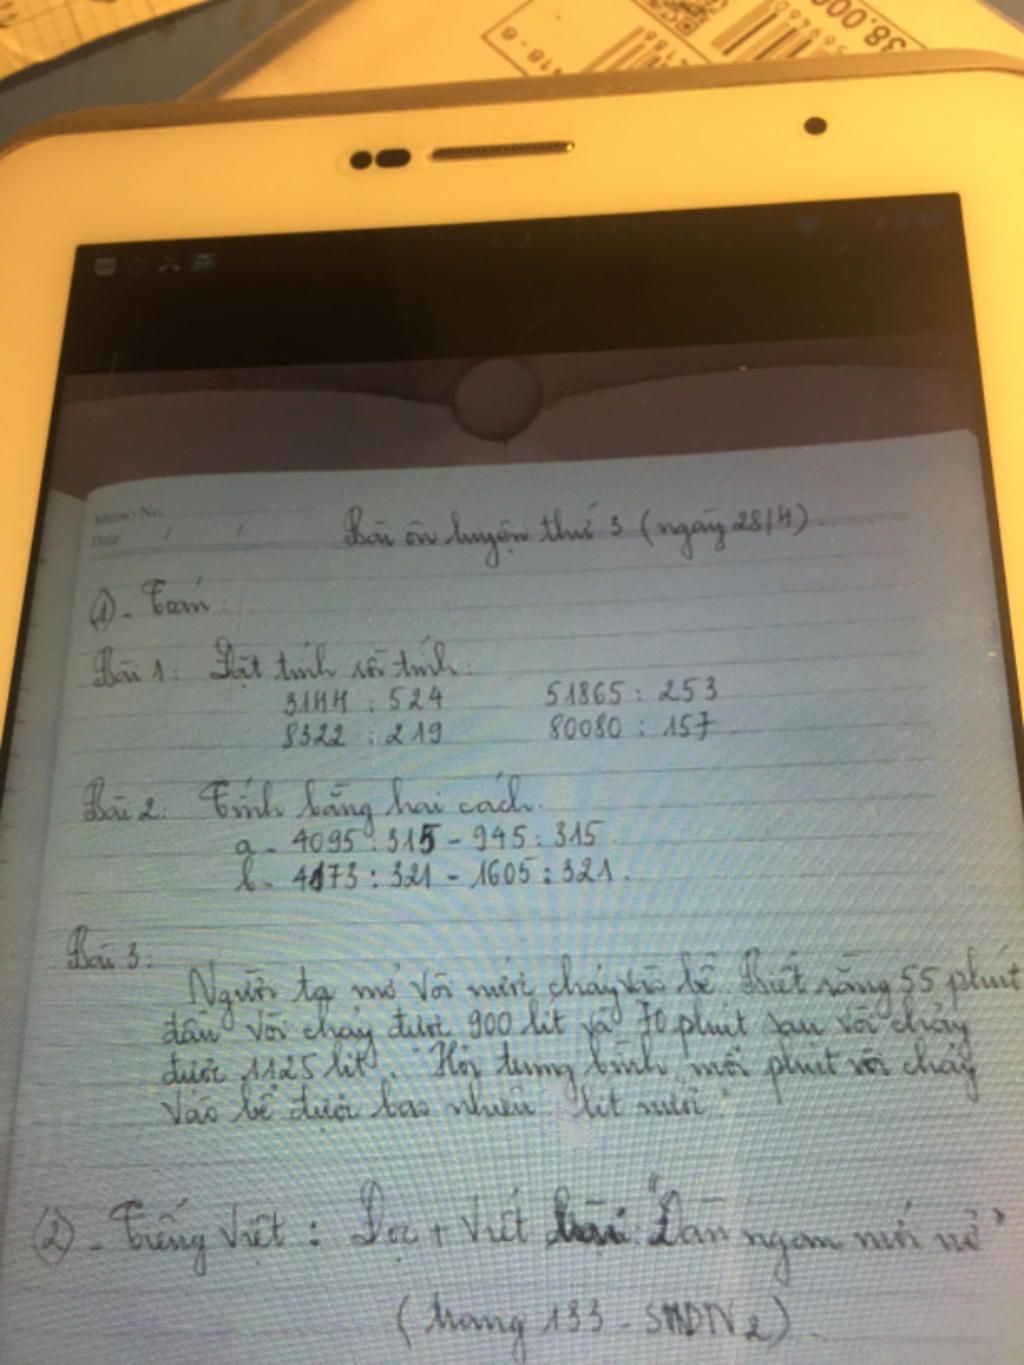 38.000
418-6
8:46
Memo No.
Date / /
Bài ôn luyện thứ 3 (ngày 28/4)
① - Toán:
Bài 1: Đặt tính rồi tính:
3144 : 524 51865 : 253
8322 : 219 80080 : 157
Bài 2: Tính bằng hai cách.
a - 4095 : 315 - 945 : 315
b - 4173 : 321 - 1605 : 321.
Bài 3:
Người ta mở vòi nước chảy vào bể. Biết rằng 55 phút
đầu vòi chảy được 900 lít và 70 phút sau vòi chảy
được 1125 lít. Hỏi trung bình mỗi phút vòi chảy
vào bể được bao nhiêu lít nước?
② - Tiếng Việt: Đọc + Viết bài: "Đàn ngan mới nở"
(trang 133 - SHDTV2).